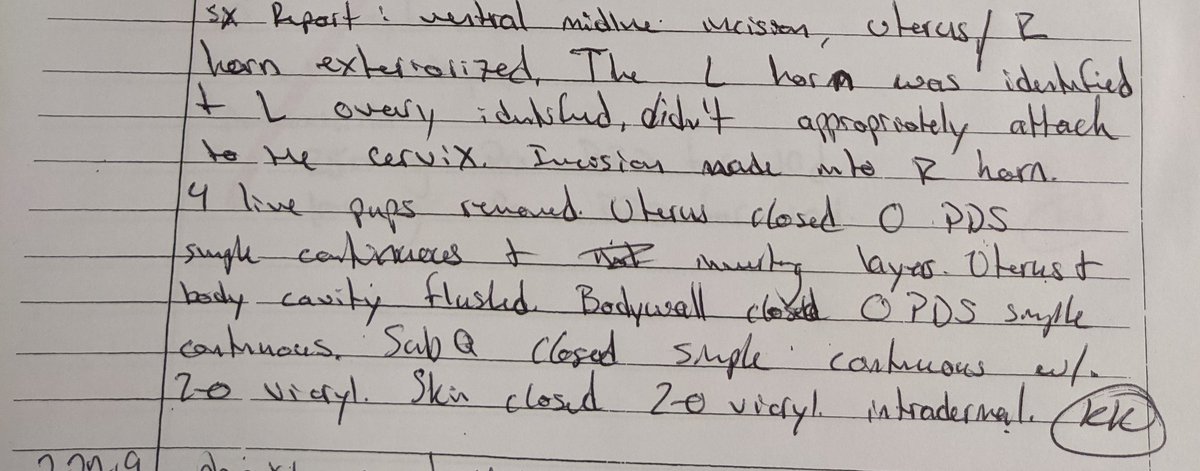 Sx Report: ventral midline incision, Uterus/ R
horn exteriorized. The L horn was identified
+ L overy identified, didn't appropriately attach
to the cervix. Incision made into R horn.
4 live pups removed. Uterus closed 0 PDS
simple continuous + inverting layers. Uterus +
body cavity flushed. Bodywall closed 0 PDS simple
continuous. SubQ closed simple continuous w/.
2-0 vicryl. Skin closed 2-0 vicryl intradermal. KK